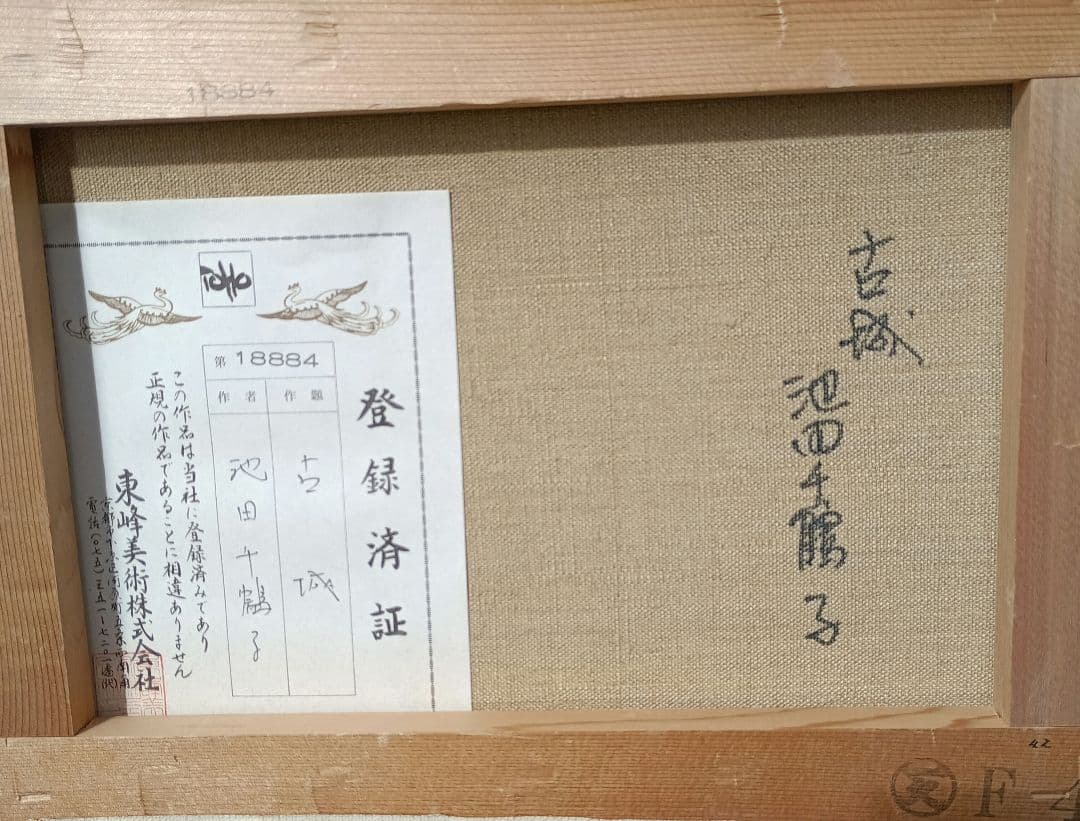 18884
TOHO
登録済証
第 18884
作題
古城
作者
池田千鶴子
この作品は当社に登録済みであり
正規の作品であることに相違ありません
東峰美術株式会社
古城
池田千鶴子
42
F-4